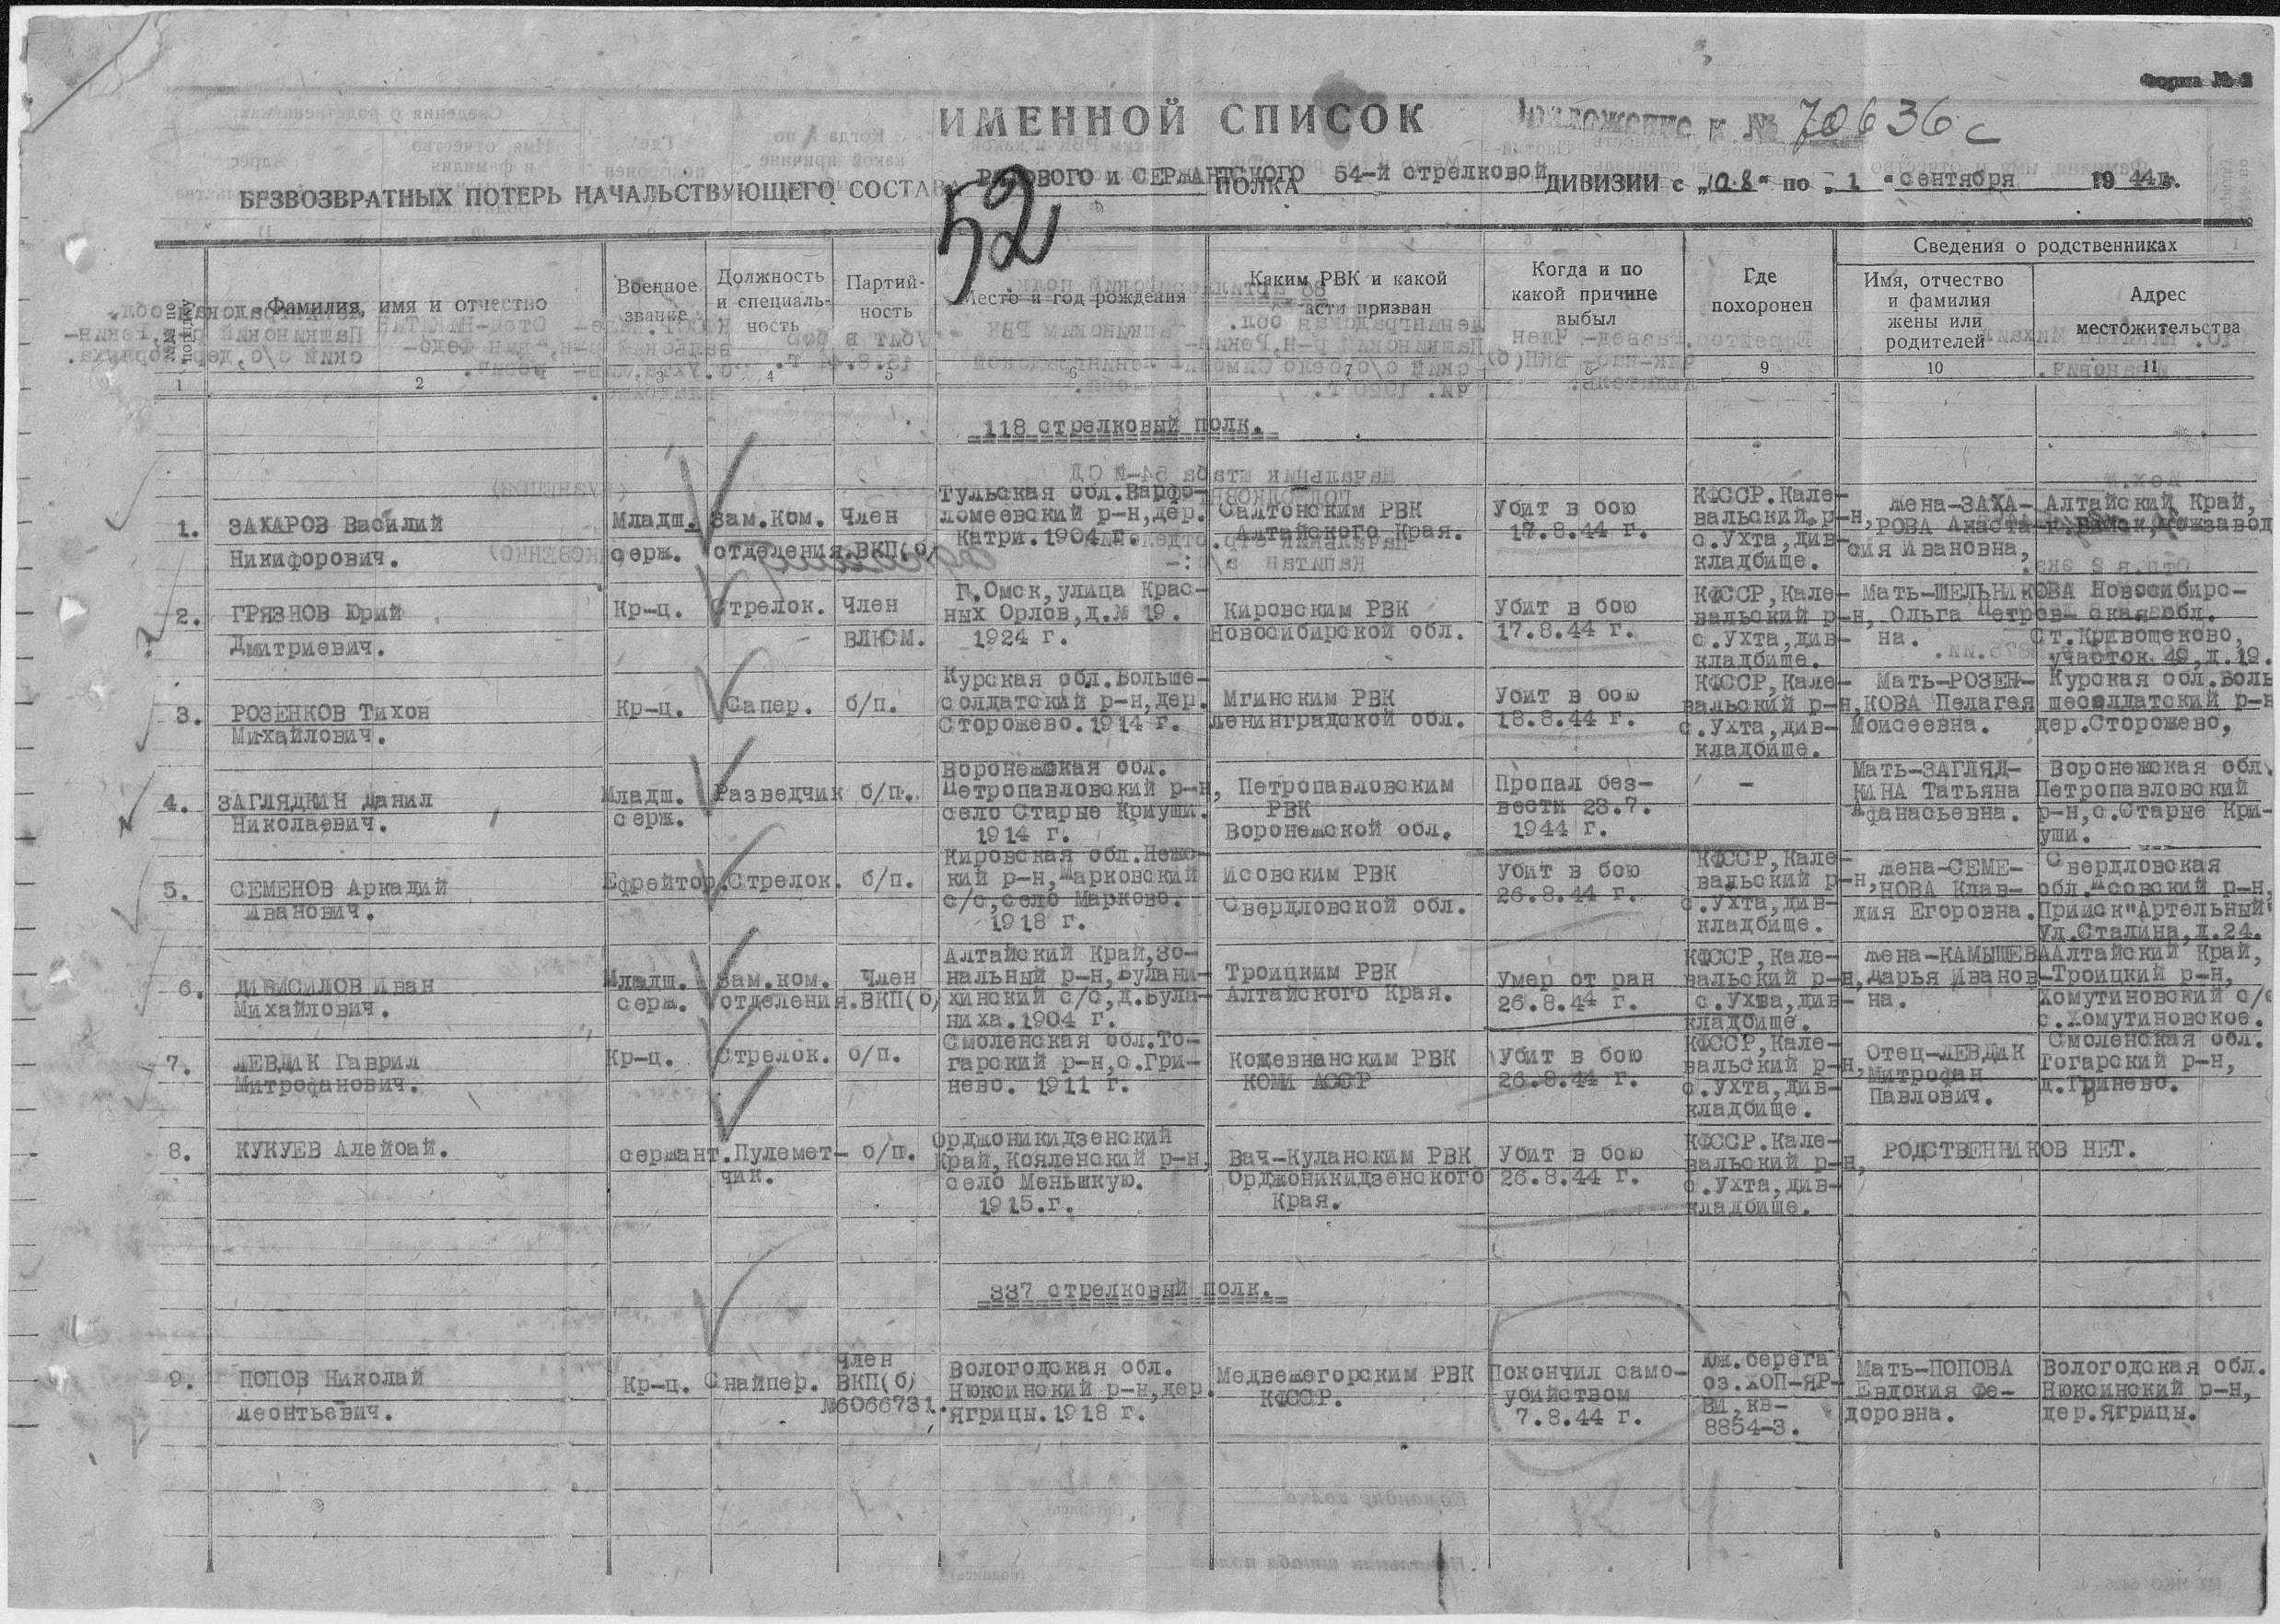 Форма № 2
ИМЕННОЙ СПИСОК
Приложение к № 70636с
БЕЗВОЗВРАТНЫХ ПОТЕРЬ НАЧАЛЬСТВУЮЩЕГО СОСТАВА РЯДОВОГО и СЕРЖАНТСКОГО ПОЛКА 54-й стрелковой ДИВИЗИИ с „10.8“ по „1“ сентября 1944 г.
52
№№ по порядку
Фамилия, имя и отчество
Военное
звание
Должность
и специаль-
ность
Партий-
ность
Место и год рождения
Каким РВК и какой
части призван
Когда и по
какой причине
выбыл
Где
похоронен
Сведения о родственниках
Имя, отчество
и фамилия
жены или
родителей
Адрес
местожительства
1 2 3 4 5 6 7 9 10 11
118 стрелковый полк.
1.
ЗАХАРОВ Василий
Никифорович.
Младш.
серж.
Зам.ком.
отделения.
Член
ВКП(б)
Тульская обл.Варфо-
ломеевский р-н,дер.
Катри.1904 г.
Салтонским РВК
Алтайского Края.
Убит в бою
17.8.44 г.
КФССР.Кале-
вальский р-н,
с.Ухта,див-
кладбище.
Жена-ЗАХА-
РОВА Анаста-
сия Ивановна,
Алтайский Край,
2.
ГРЯЗНОВ Юрий
Дмитриевич.
Кр-ц.
Стрелок.
Член
ВЛКСМ.
Г.Омск,улица Крас-
ных Орлов,д.№ 19.
1924 г.
Кировским РВК
Новосибирской обл.
Убит в бою
17.8.44 г.
КФССР,Кале-
вальский р-н,
с.Ухта,див-
кладбище.
Мать-ШЕЛЬНИКОВА
Ольга Петров-
на.
Новосибирс-
кая обл.
Ст.Кривощеково,
участок 49,д.19.
3.
РОЗЕНКОВ Тихон
Михайлович.
Кр-ц.
Сапер.
б/п.
Курская обл.Больше-
солдатский р-н,дер.
Сторожево.1914 г.
Мгинским РВК
Ленинградской обл.
Убит в бою
18.8.44 г.
КФССР,Кале-
вальский р-н,
с.Ухта,див-
кладбище.
Мать-РОЗЕН-
КОВА Пелагея
Моисеевна.
Курская обл.Боль
шесолдатский р-н
дер.Сторожево,
4.
ЗАГЛЯДКИН Данил
Николаевич.
Младш.
серж.
Разведчик
б/п.
Воронежская обл.
Петропавловский р-н,
село Старые Криуши.
1914 г.
Петропавловским
РВК
Воронежской обл.
Пропал без-
вести 23.7.
1944 г.
-
Мать-ЗАГЛЯД-
КИНА Татьяна
Афанасьевна.
Воронежская обл.
Петропавловский
р-н,с.Старые Кри-
уши.
5.
СЕМЕНОВ Аркадий
Иванович.
Ефрейтор.
Стрелок.
б/п.
Кировская обл.Нежс-
кий р-н,Марковский
с/с,село Марково.
1918 г.
Исовским РВК
Свердловской обл.
Убит в бою
26.8.44 г.
КФССР,Кале-
вальский р-н,
с.Ухта,див-
кладбище.
Жена-СЕМЕ-
НОВА Клав-
дия Егоровна.
Свердловская
обл.Исовский р-н,
Прииск"Артельный"
Ул.Сталина,д.24.
6.
ДИВИСИЛОВ Иван
Михайлович.
Младш.
серж.
Зам.ком.
отделения.
Член
ВКП(б)
Алтайский Край,Зо-
нальный р-н,Булани-
хинский с/с,д.Була-
ниха.1904 г.
Троицким РВК
Алтайского Края.
Умер от ран
26.8.44 г.
КФССР,Кале-
вальский р-н,
с.Ухта,див-
кладбище.
Жена-КАМЫШЕВА
Дарья Иванов-
на.
Алтайский Край,
Троицкий р-н,
Хомутиновский с/с
с.Хомутиновское.
7.
ЛЕВДИК Гаврил
Митрофанович.
Кр-ц.
Стрелок.
б/п.
Смоленская обл.То-
гарский р-н,с.Гри-
нево. 1911 г.
Кожевнанским РВК
КОМИ АССР
Убит в бою
26.8.44 г.
КФССР,Кале-
вальский р-н,
с.Ухта,див-
кладбище.
Отец-ЛЕВДИК
Митрофан
Павлович.
Смоленская обл.
Тогарский р-н,
д.Гринево.
8.
КУКУЕВ Алейбай.
сержант.
Пулемет-
чик.
б/п.
Орджоникидзенский
Край,Кояленский р-н,
село Меньшкую.
1915.г.
Вач-Куланским РВК
Орджоникидзенского
Края.
Убит в бою
26.8.44 г.
КФССР.Кале-
вальский р-н,
с.Ухта,див-
кладбище.
РОДСТВЕННИКОВ НЕТ.
337 стрелковый полк.
9.
ПОПОВ Николай
Леонтьевич.
Кр-ц.
Снайпер.
Член
ВКП(б)
№6066731.
Вологодская обл.
Нюксинский р-н,дер.
Ягрицы.1918 г.
Медвежегорским РВК
КФССР.
Покончил само-
убийством
7.8.44 г.
Юж.берега
оз.ХОП-ЯР-
ВИ,кв-
8854-3.
Мать-ПОПОВА
Евдокия Фе-
доровна.
Вологодская обл.
Нюксинский р-н,
дер.Ягрицы.